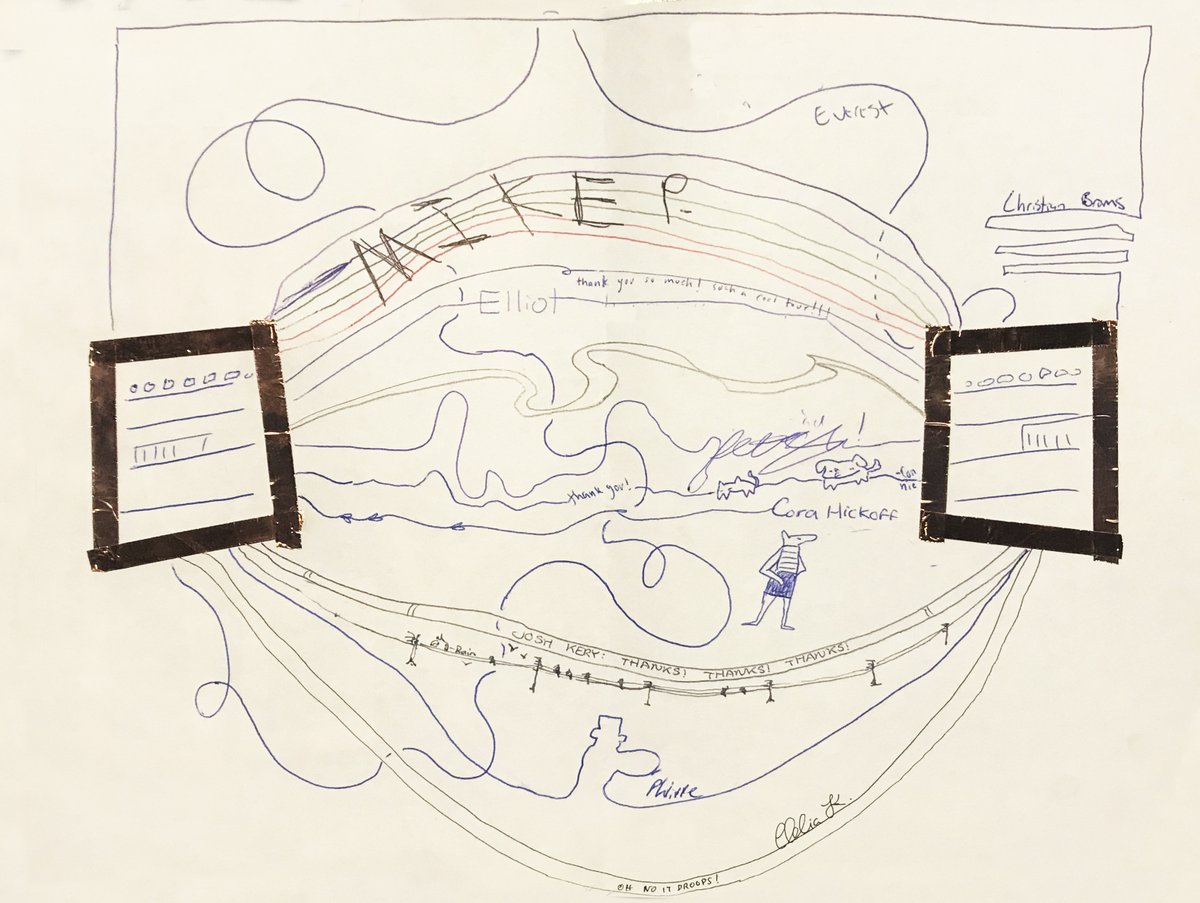 Everest
Christian Broms
MIKE P.
Elliot
thank you so much! such a cool tour!!!
thank you!
-Con
nie
Cora Hickoff
JOSH KERY: THANKS! THANKS! THANKS!
-Rain
Phirre
Clelia K.
OH NO IT DROOPS!